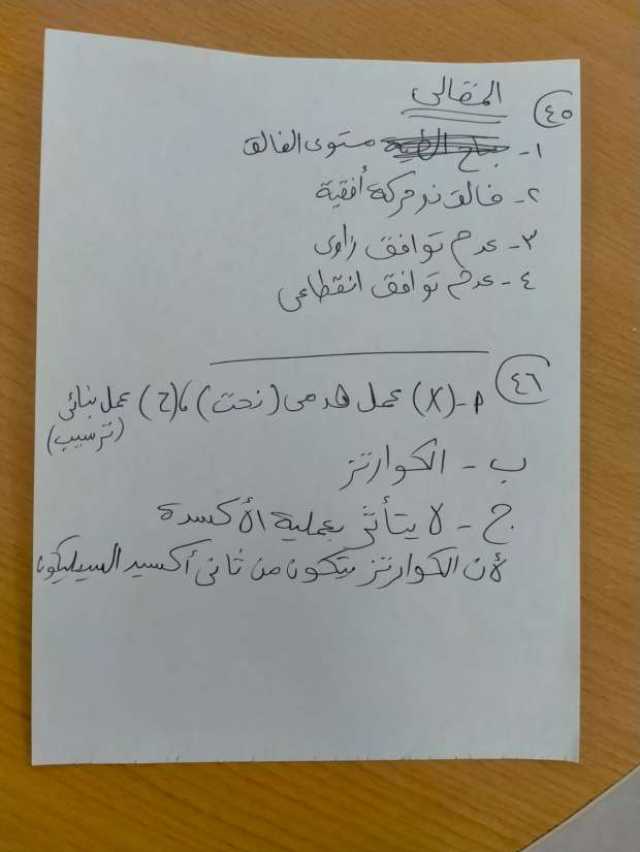 المقالى
٤٥
١- مستوى الفالق
٢- فالق ذو حركة أفقية
٣- عدم توافق زاوى
٤- عدم توافق انقطاعى
٤٦
أ- (X) عمل هدمى (نحت)، (Z) عمل بنائى (ترسيب)
ب - الكوارتز
ج - لا يتأثر بعملية الأكسدة
لأن الكوارتز يتكون من ثانى أكسيد السيليكون